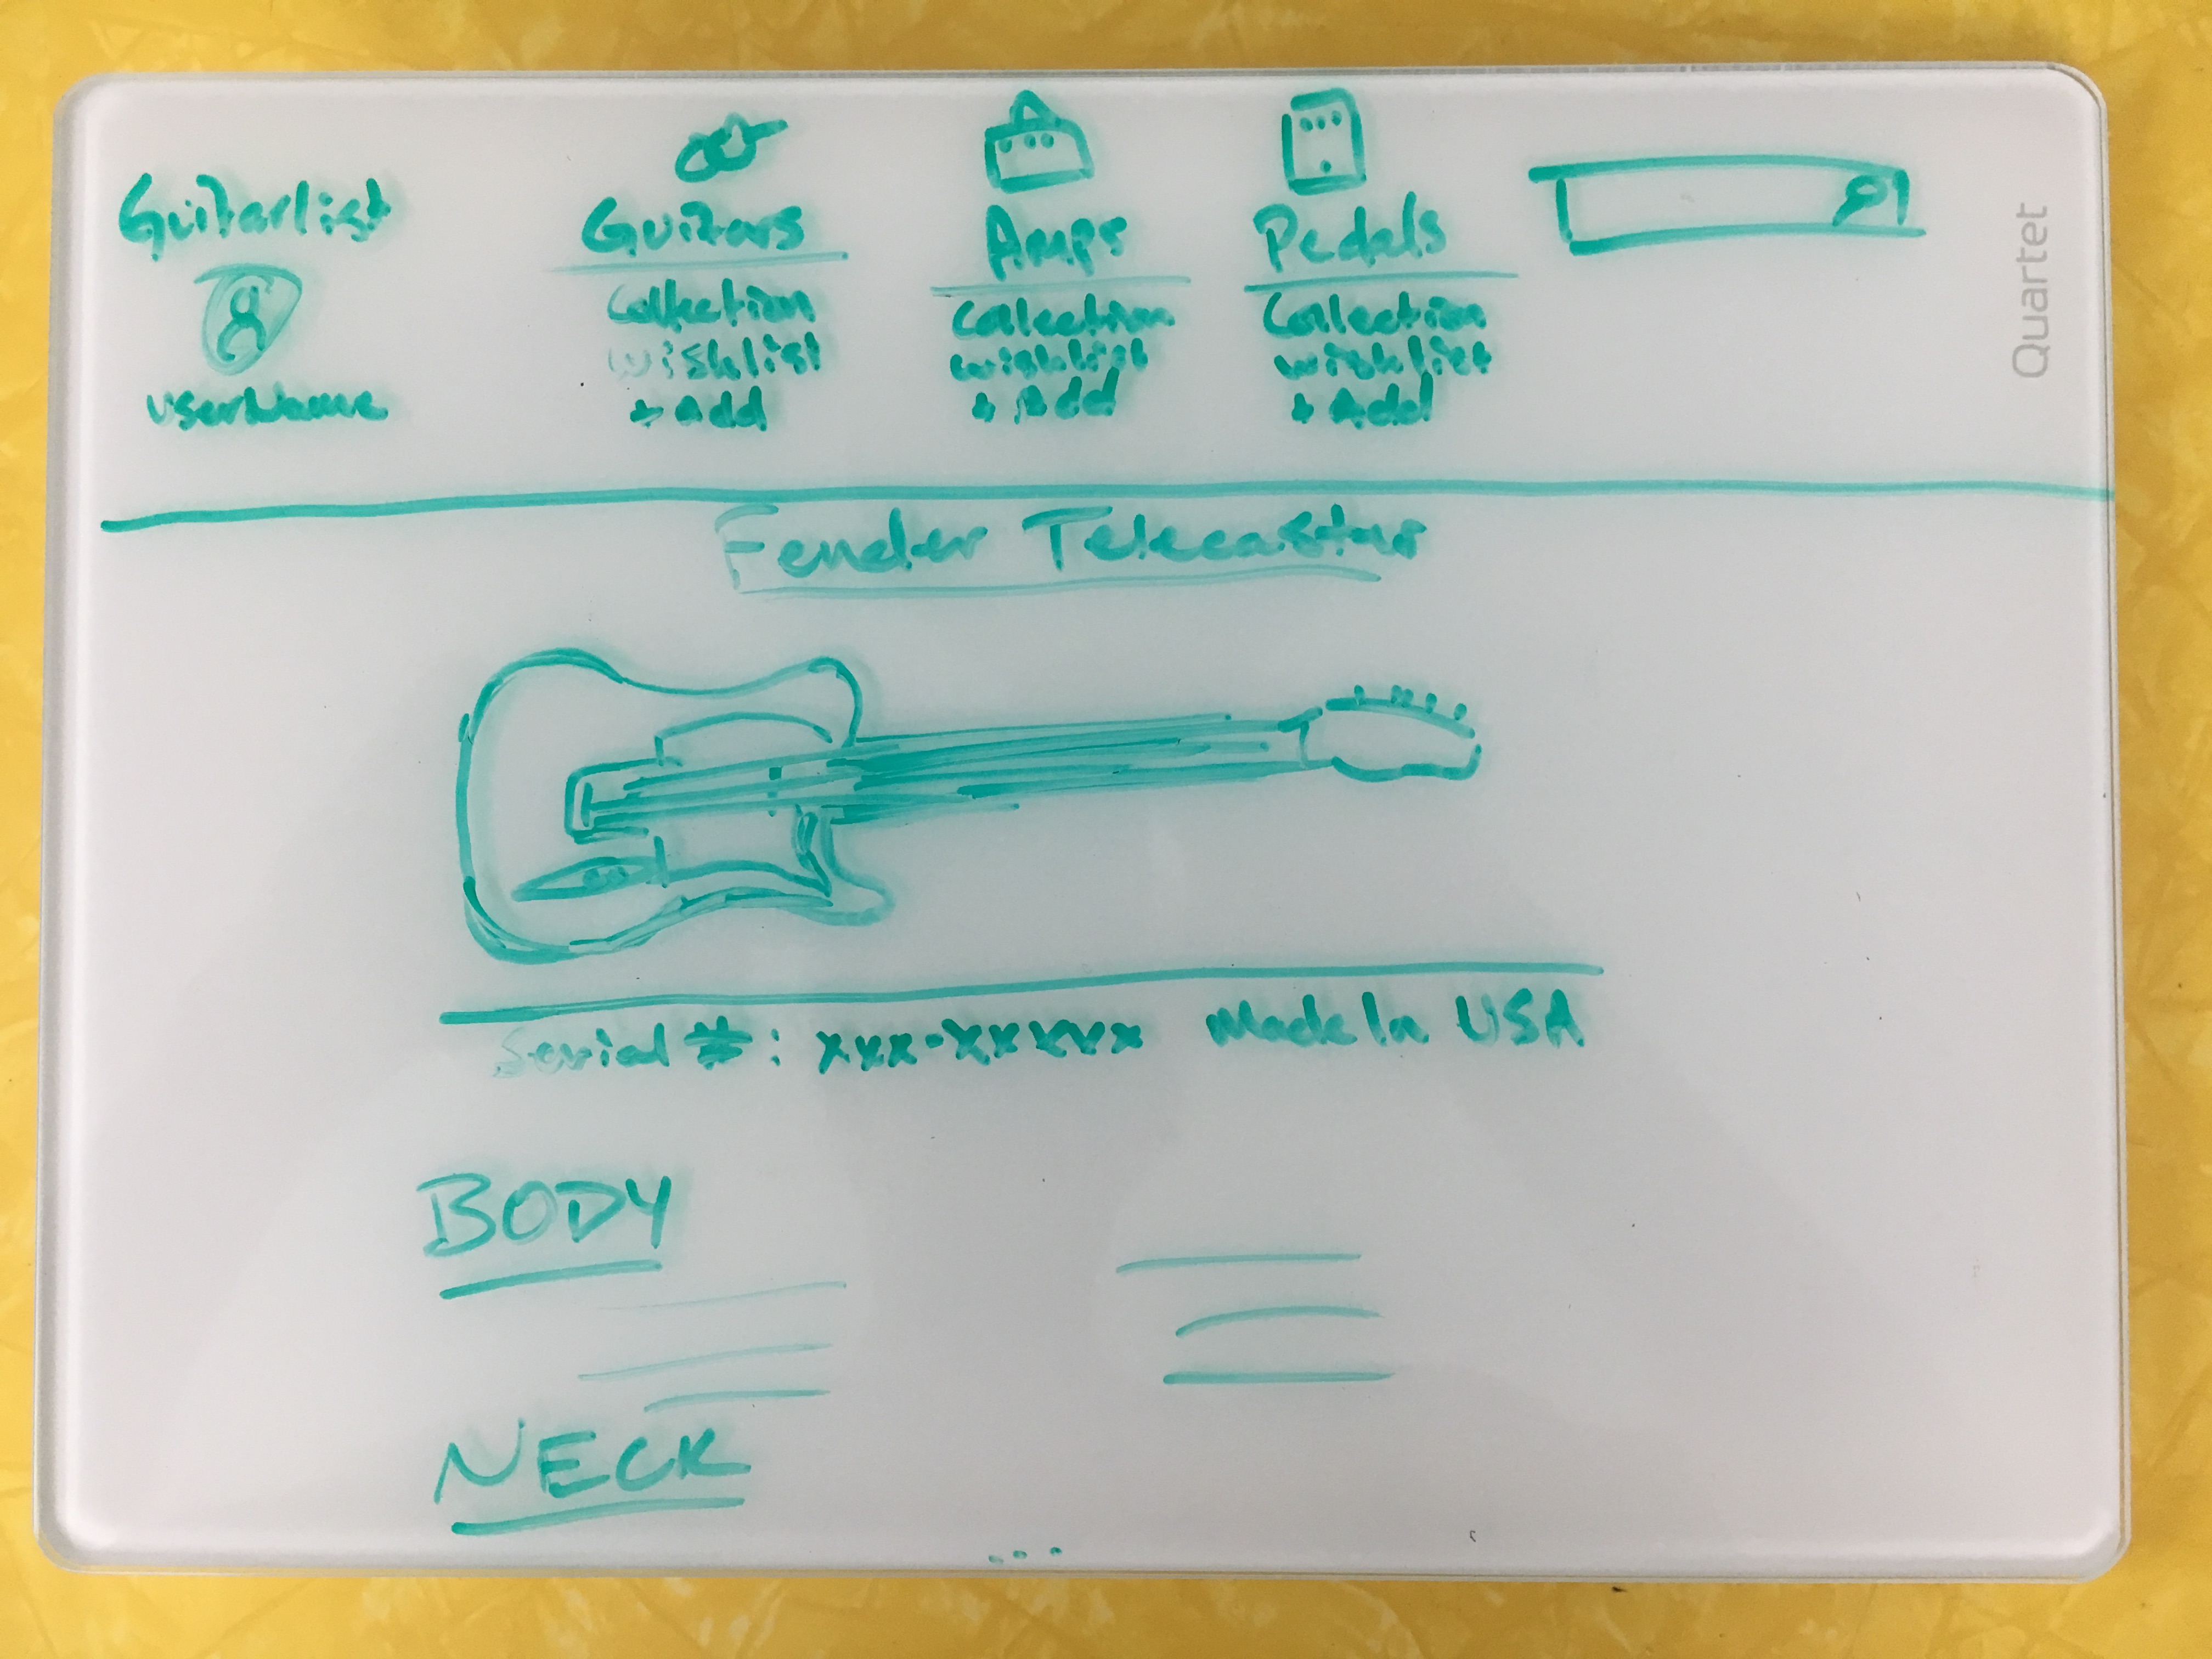 Guitarlist
userName
Guitars
Collection
Wishlist
+ Add
Amps
Collection
Wishlist
+ Add
Pedals
Collection
Wishlist
+ Add
Quartet
Fender Telecaster
Serial #: xxx-xxxxxx Made In USA
BODY
NECK
...